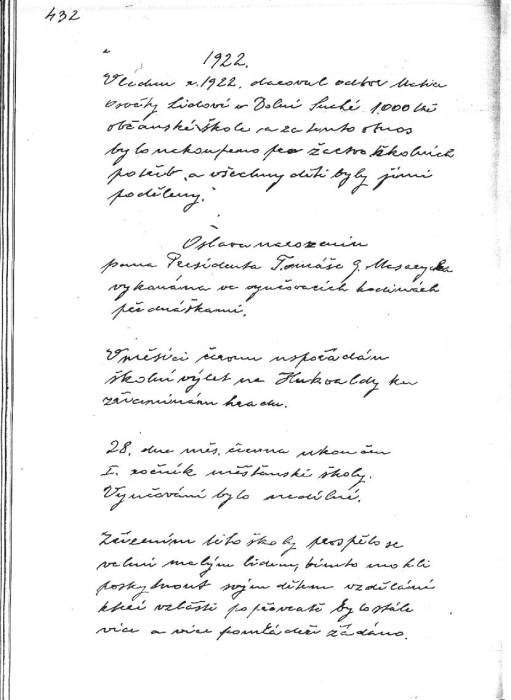 432
1922.
V lednu r. 1922. daroval odbor Matice
Osvěty Lidové v Dolní Suché 1.000 Kč
občanské škole a za tento obnos
bylo nakoupeno pro žactvo školních
potřeb, a všechny děti byly jimi
poděleny.
Oslava narozenin
pana Presidenta Tomáše G. Masaryka
vykonána ve vyučovacích hodinách
přednáškami.
V měsíci červnu uspořádán
školní výlet na Hukvaldy ku
zříceninám hradu.
28. dne měs. června ukončen
I. ročník měšťanské školy.
Vyučování bylo nedělné.
Zřízením této školy prospělo se
velmi malým lidem, kteří mohli
poskytnout svým dětem vzdělání
které vzláště po převratě bylo stále
více a více požadováno.